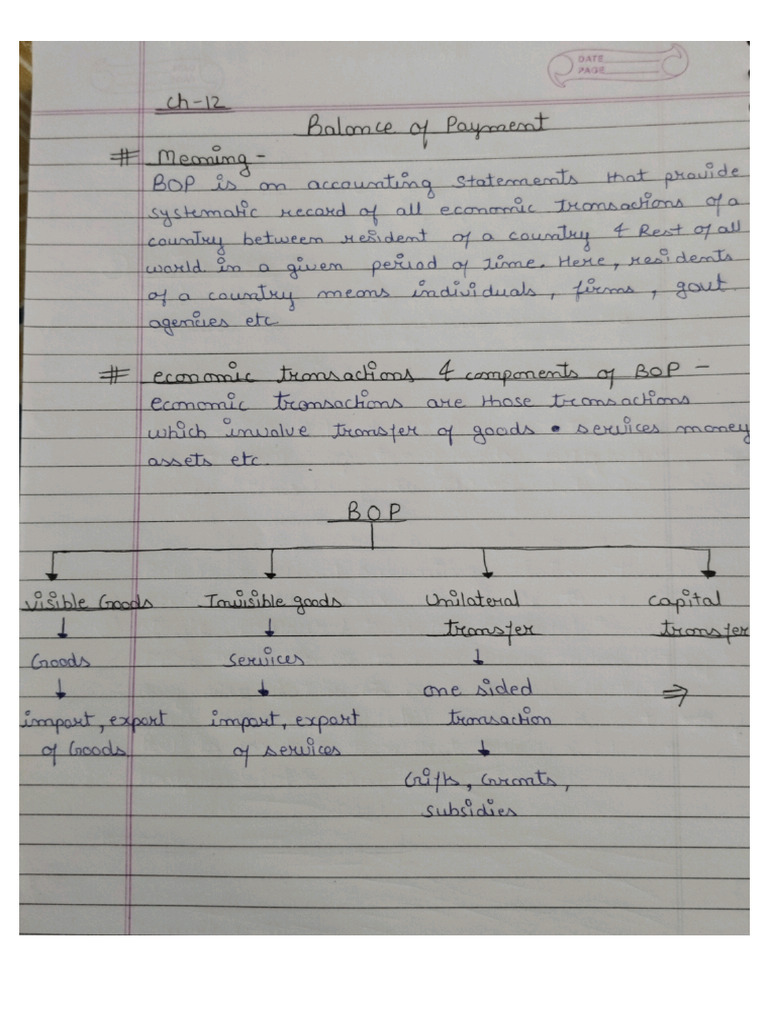 DATE
PAGE
Ch-12
Balance of Payment
# Meaning -
BOP is an accounting statements that provide
systematic record of all economic transactions of a
country between resident of a country & Rest of all
world in a given period of time. Here, residents
of a country means individuals, firms, govt.
agencies etc
# economic transactions & components of BOP -
economic transactions are those transactions
which involve transfer of goods • services money
assets etc.
BOP
visible Goods Invisible goods Unilateral capital
transfer transfer
Goods services
one sided ⇒
import, export import, export transaction
of Goods. of services
Gifts, Grants,
subsidies